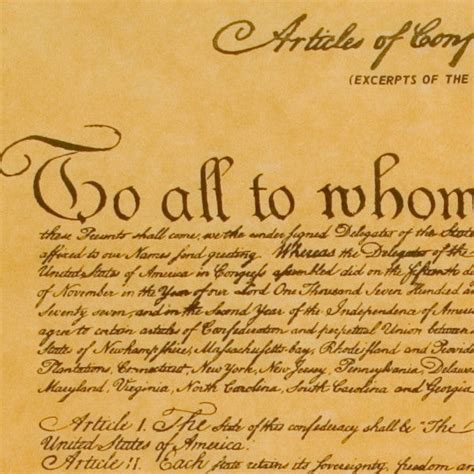 Articles of Conf
(EXCERPTS OF THE
To all to whom
these Presents shall come, we the under signed Delegates of the State
affixed to our Names send greeting Whereas the Delegates of the
United States of America in Congress assembled did on the fifteenth da
of November in the Year of our Lord One Thousand Seven Hundred an
Seventy seven, and in the Second Year of the Independence of Ameri
agree to certain articles of Confederation and perpetual Union between
State of Newhampshire, Massachusetts-bay, Rhodeisland and Provide
Plantations, Connecticut, New York, New Jersey, Pennsylvania, Delawa
Maryland, Virginia, North Carolina, South Carolina and Georgia
Article I. The State of this confederacy shall be "The
United States of America.
Article II. Each state retains its Sovereignty, freedom an